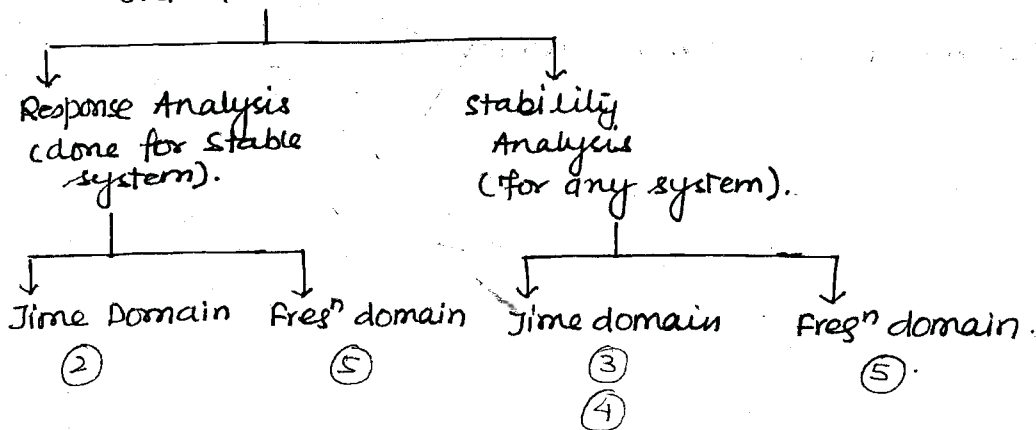 Response Analysis
(done for stable
system).
stability
Analysis
(for any system).
Time Domain
②
Freqⁿ domain
⑤
Time domain
③
④
Freqⁿ domain.
⑤.